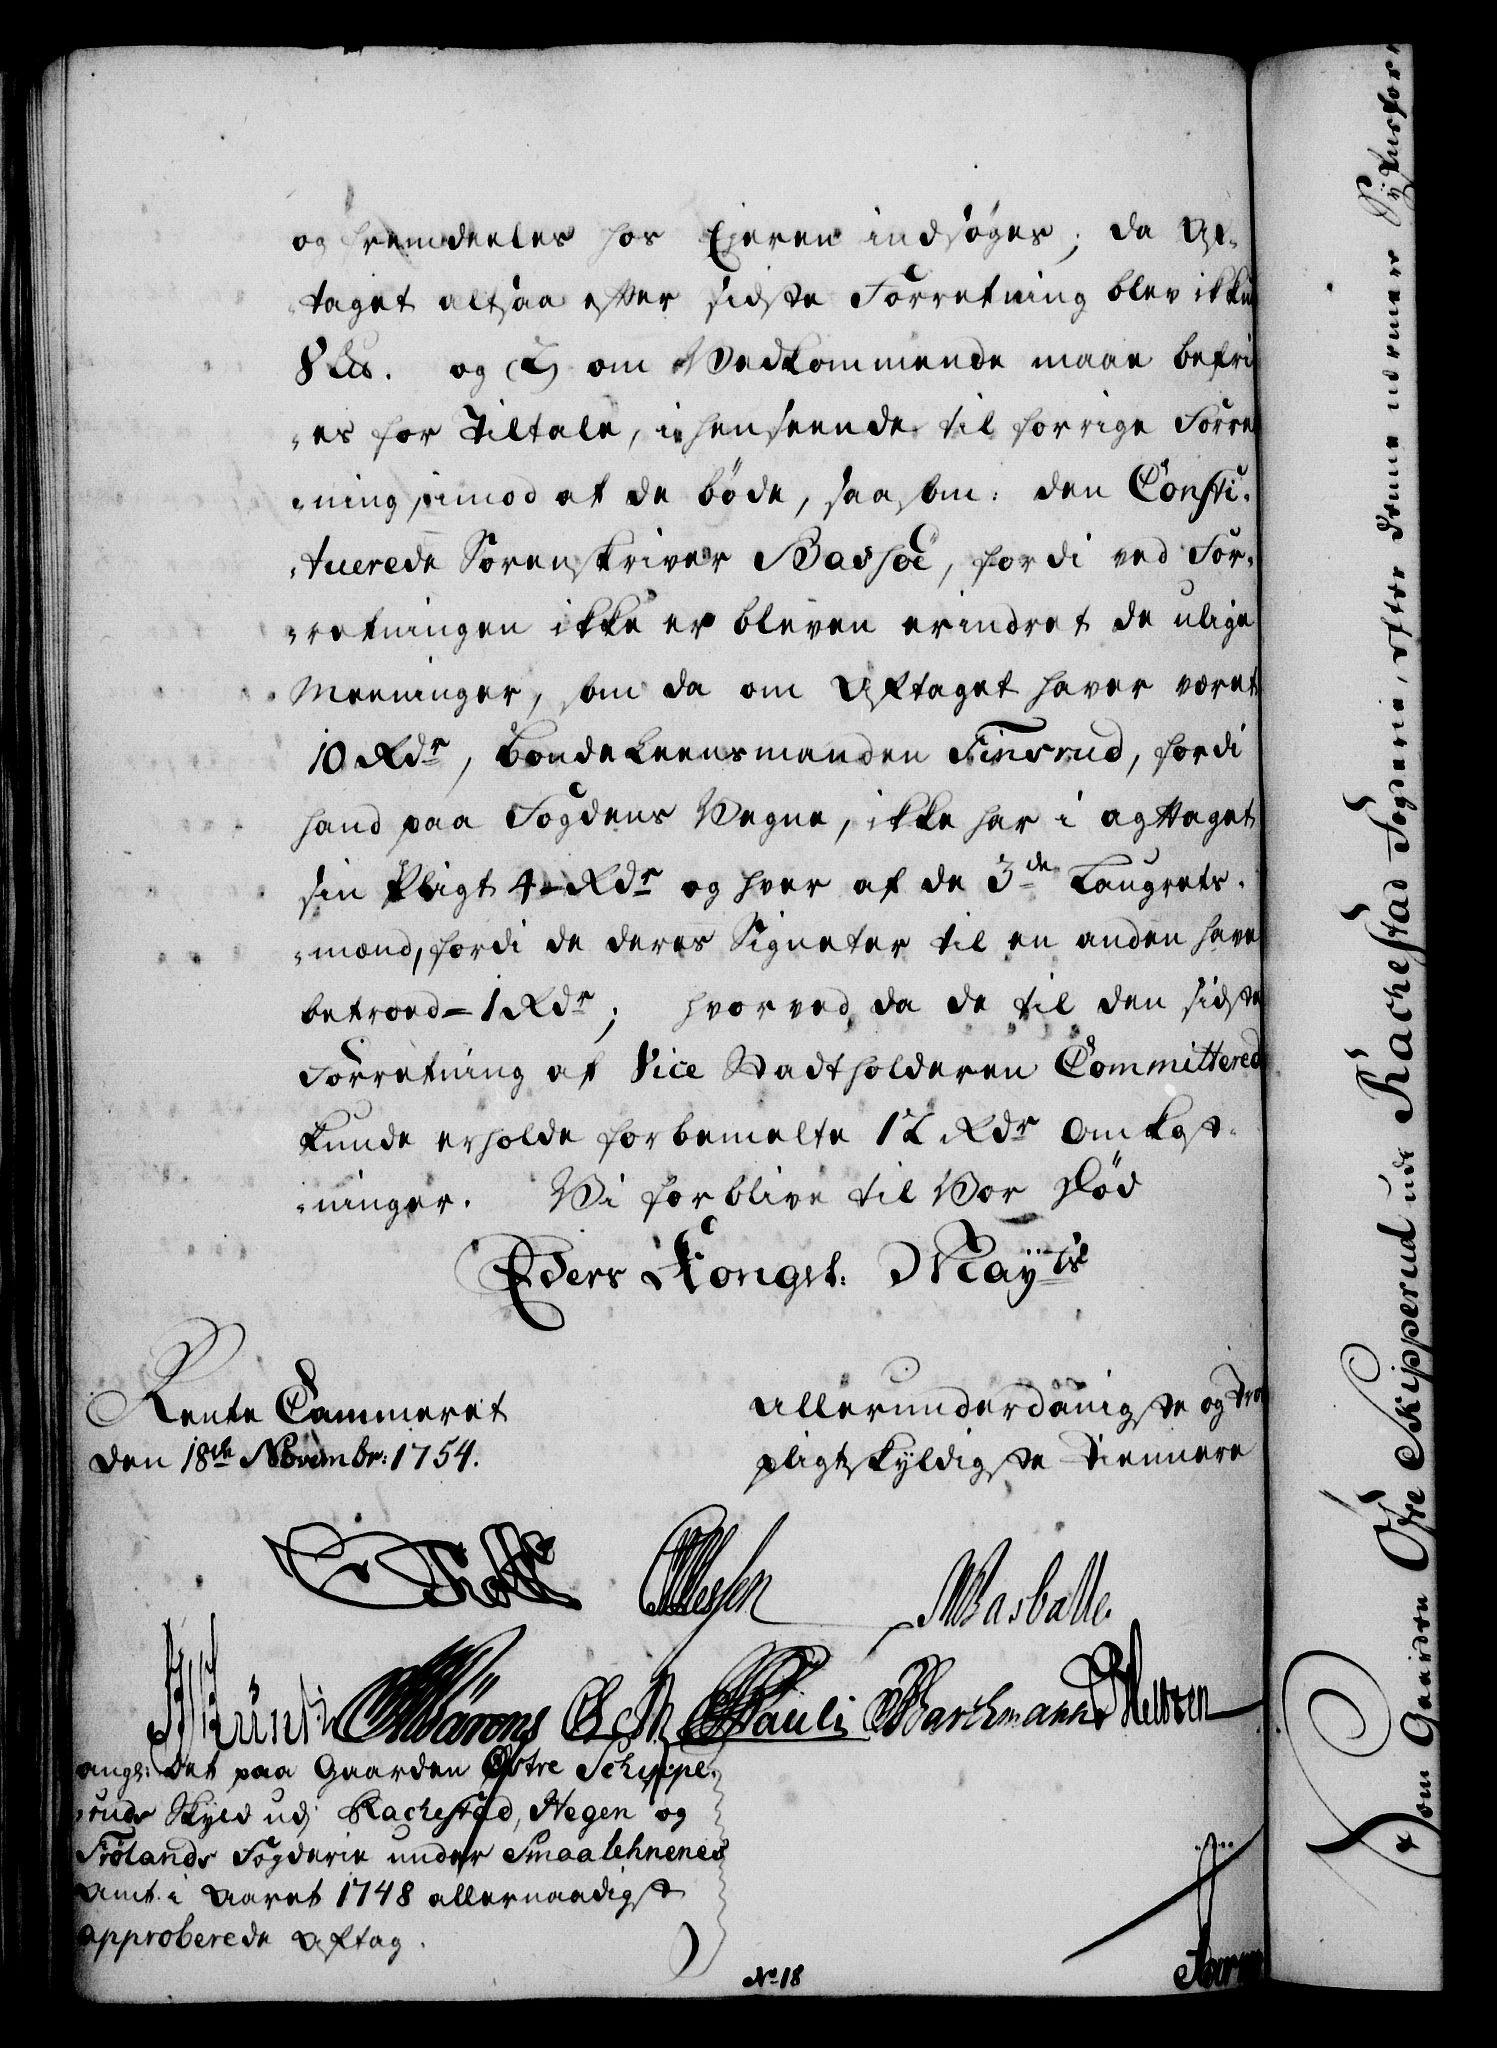 og fremdeeles hos Ejeren indsøges; da Af-
-taget altsaa efter sidste Forretning blev ikkun
8 Lis. og 2) om Vedkommende maae befri
-es for Tiltale, i henseende til forrige Forret
-ning, imod at de bøde, saasom: den Consti-
-tuerede Sorenskriver Bashøe, fordi ved For-
-retningen ikke er bleven erindret de ulige
Meeninger, som da om Aftaget haver været
10 Rdr, Bonde Leensmanden Finsrud, fordi
hand paa Fogdens Vegne, ikke har i agttaget
sin Pligt 4 Rdr og hver af de 3de Laugrets-
-mænd, fordi de deres Signeter til en anden have
betroed - 1 Rdr; hvorved da de til den sidste
Forretning af Vice Stadtholderen Committered
kunde erholde forbemelte 12 Rdr Omkost-
-ninger. Vi forblive til Vor Død
Eders Kongel: May:ts
Rente Cammeret
den 18de Novembr: 1754.
Allerunderdanigste og Troe
pligtskyldigste Tiennere
Holst
Wessen
Basballe
angl: det paa Gaarden Østre Schippe-
-ruds Skyld udj Rachestad, Hegen og
Frølands Fogderie under Smaalehnenes
Amt i Aaret 1748 allernaadigst
approberede Aftag.
No 18
Som Gaarden Østre Skipperud udi Rachestad Fogderie, efter denne nærmere Synsfor